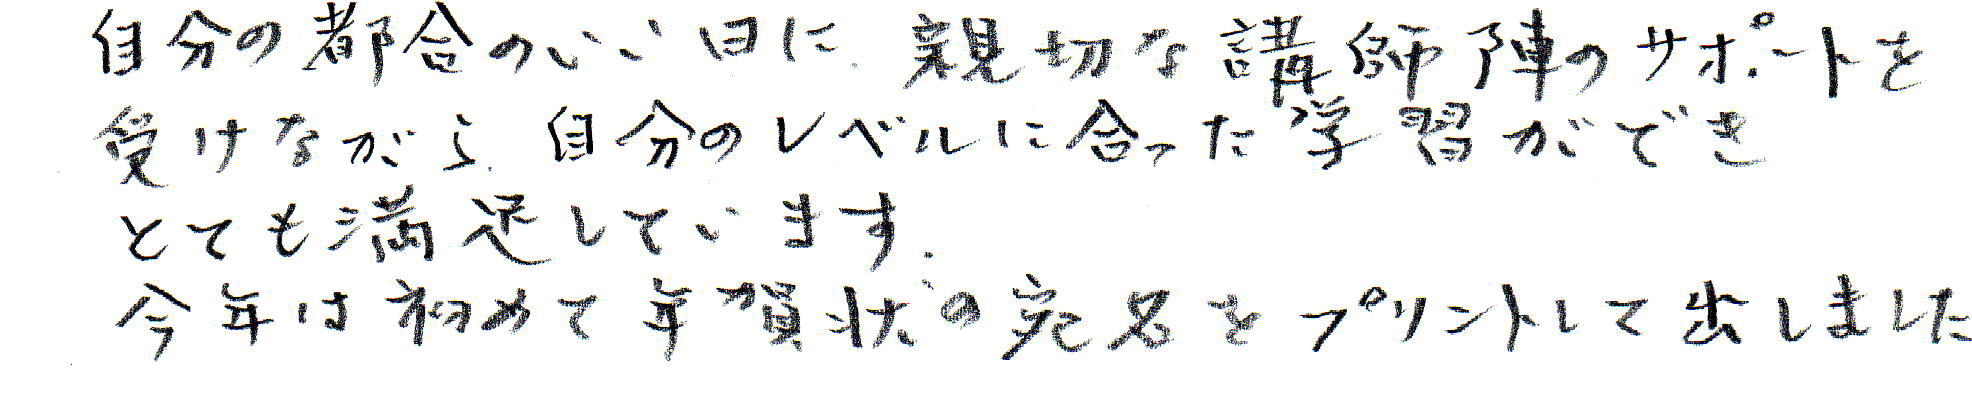 自分の都合のいい日に、親切な講師陣のサポートを
受けながら、自分のレベルに合った学習ができ
とても満足しています。
今年は初めて年賀状の宛名をプリントして出しました